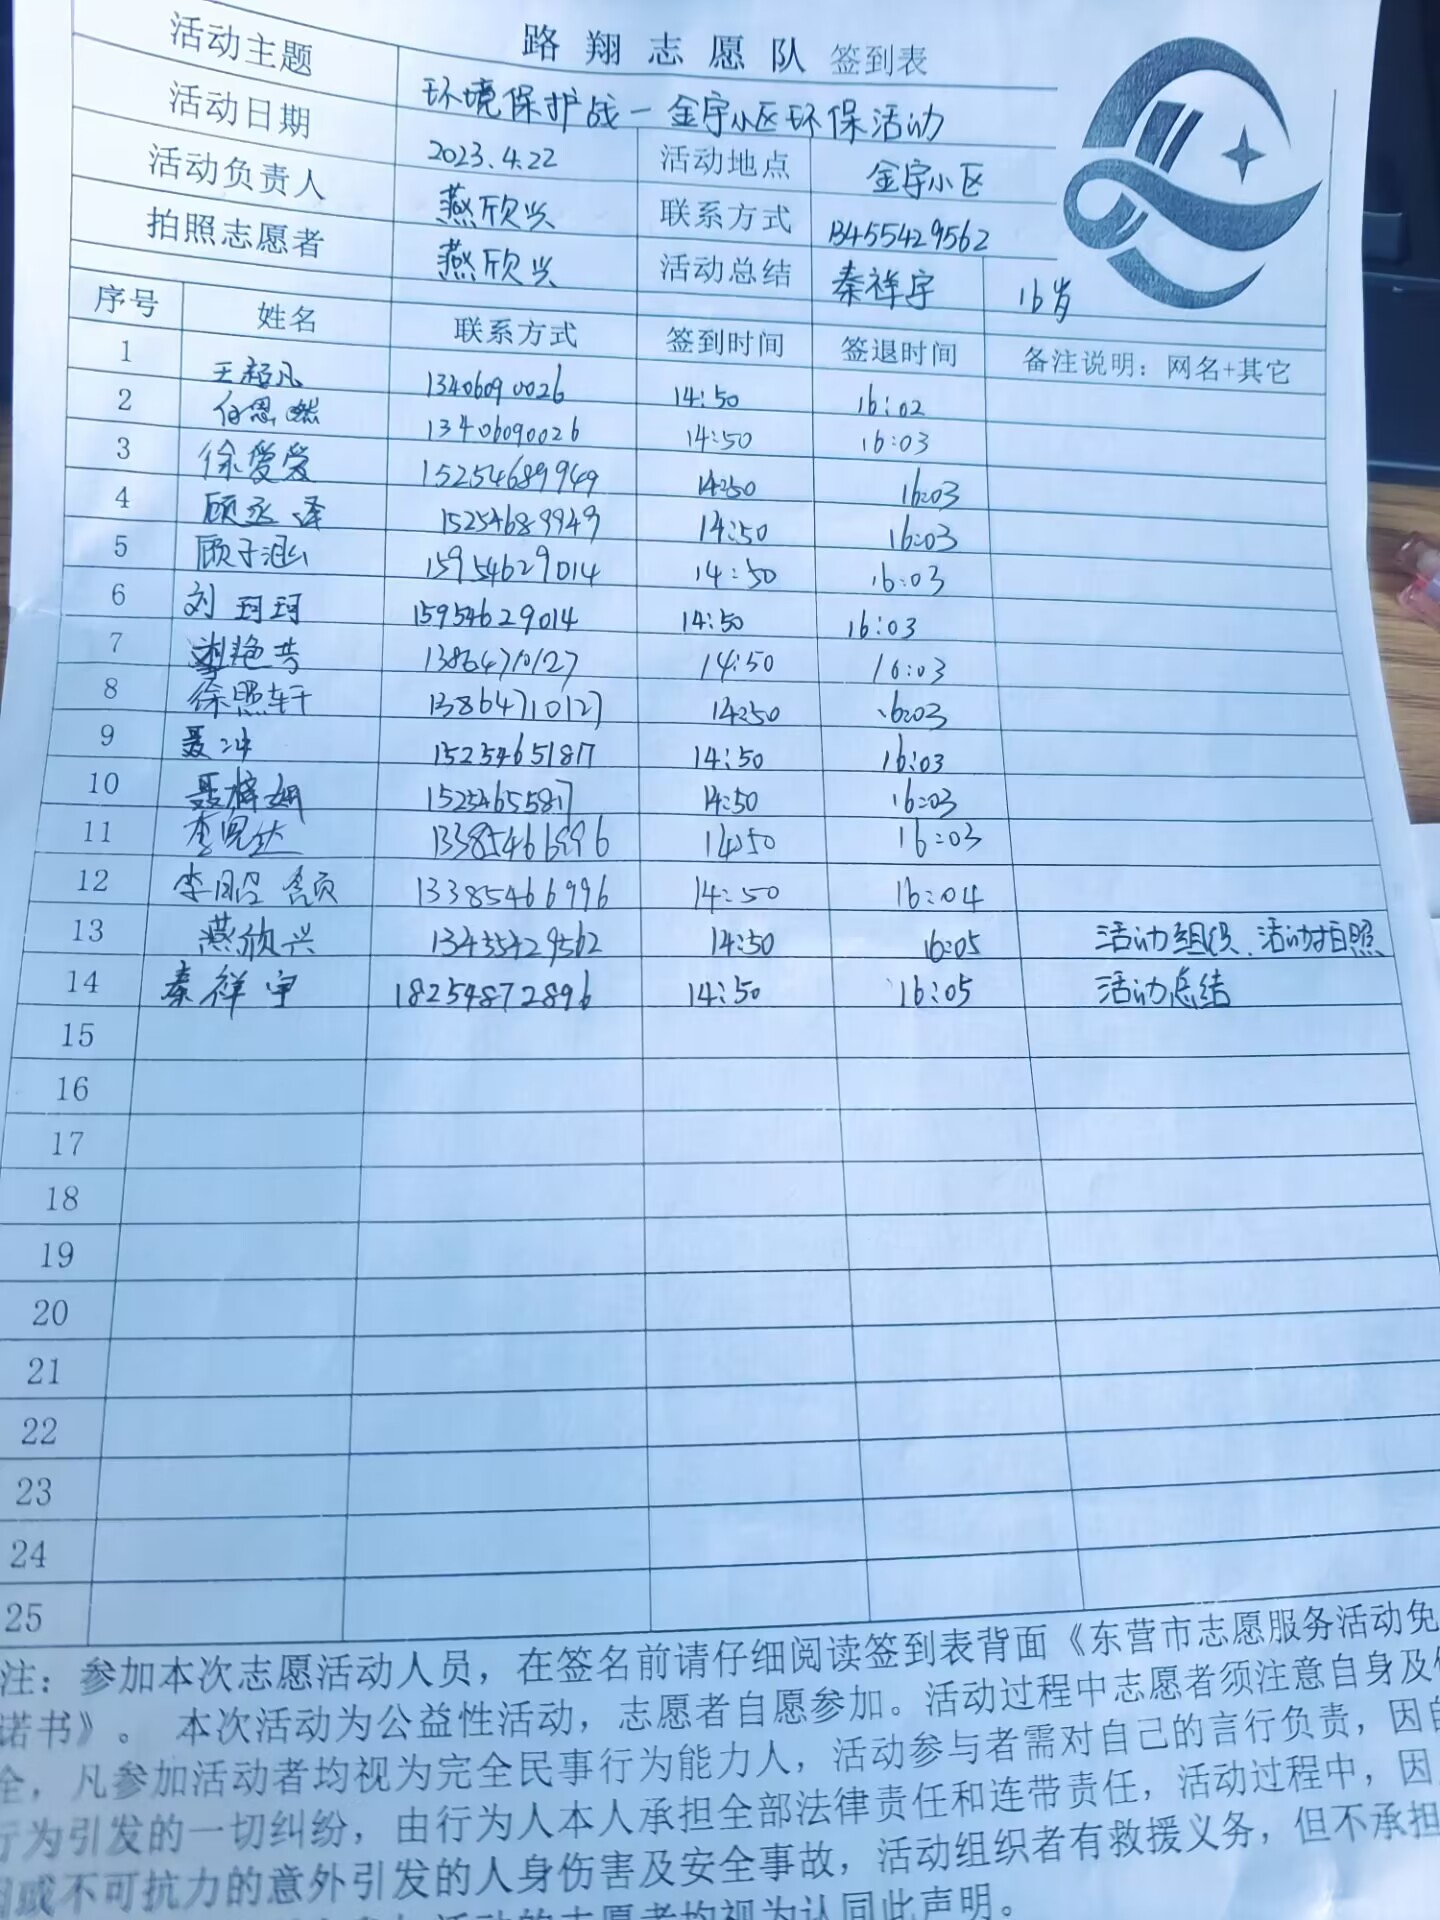 路翔志愿队 签到表
活动主题 环境保护战一金宇小区环保活动
活动日期 2023.4.22 活动地点 金宇小区
活动负责人 燕欣兴 联系方式 13455429562
拍照志愿者 燕欣兴 活动总结 秦祥宇 16岁
序号 姓名 联系方式 签到时间 签退时间 备注说明：网名+其它
1 王超凡 13406090026 14:50 16:02
2 任恩燃 13406090026 14:50 16:03
3 徐爱爱 15254689949 14:50 16:03
4 顾丞泽 15254689949 14:50 16:03
5 顾子涵 15954629014 14:50 16:03
6 刘珂珂 15954629014 14:50 16:03
7 艳芳 13864710127 14:50 16:03
8 徐照轩 13864710127 14:50 16:03
9 聂冲 14:50 16:03
10 聂梓妍 14:50 16:03
11 李 达 13385466996 14:50 16:03
12 李 13385466996 14:50 16:04
13 燕欣兴 13455429562 14:50 16:05 活动组织、活动拍照
14 秦祥宇 18254872896 14:50 16:05 活动总结
15
16
17
18
19
20
21
22
23
24
25
注：参加本次志愿活动人员，在签名前请仔细阅读签到表背面《东营市志愿服务活动免
诺书》。 本次活动为公益性活动，志愿者自愿参加。活动过程中志愿者须注意自身及
全，凡参加活动者均视为完全民事行为能力人，活动参与者需对自己的言行负责，因自
行为引发的一切纠纷，由行为人本人承担全部法律责任和连带责任，活动过程中，因
或不可抗力的意外引发的人身伤害及安全事故，活动组织者有救援义务，但不承担
活动的志愿者均视为认同此声明。